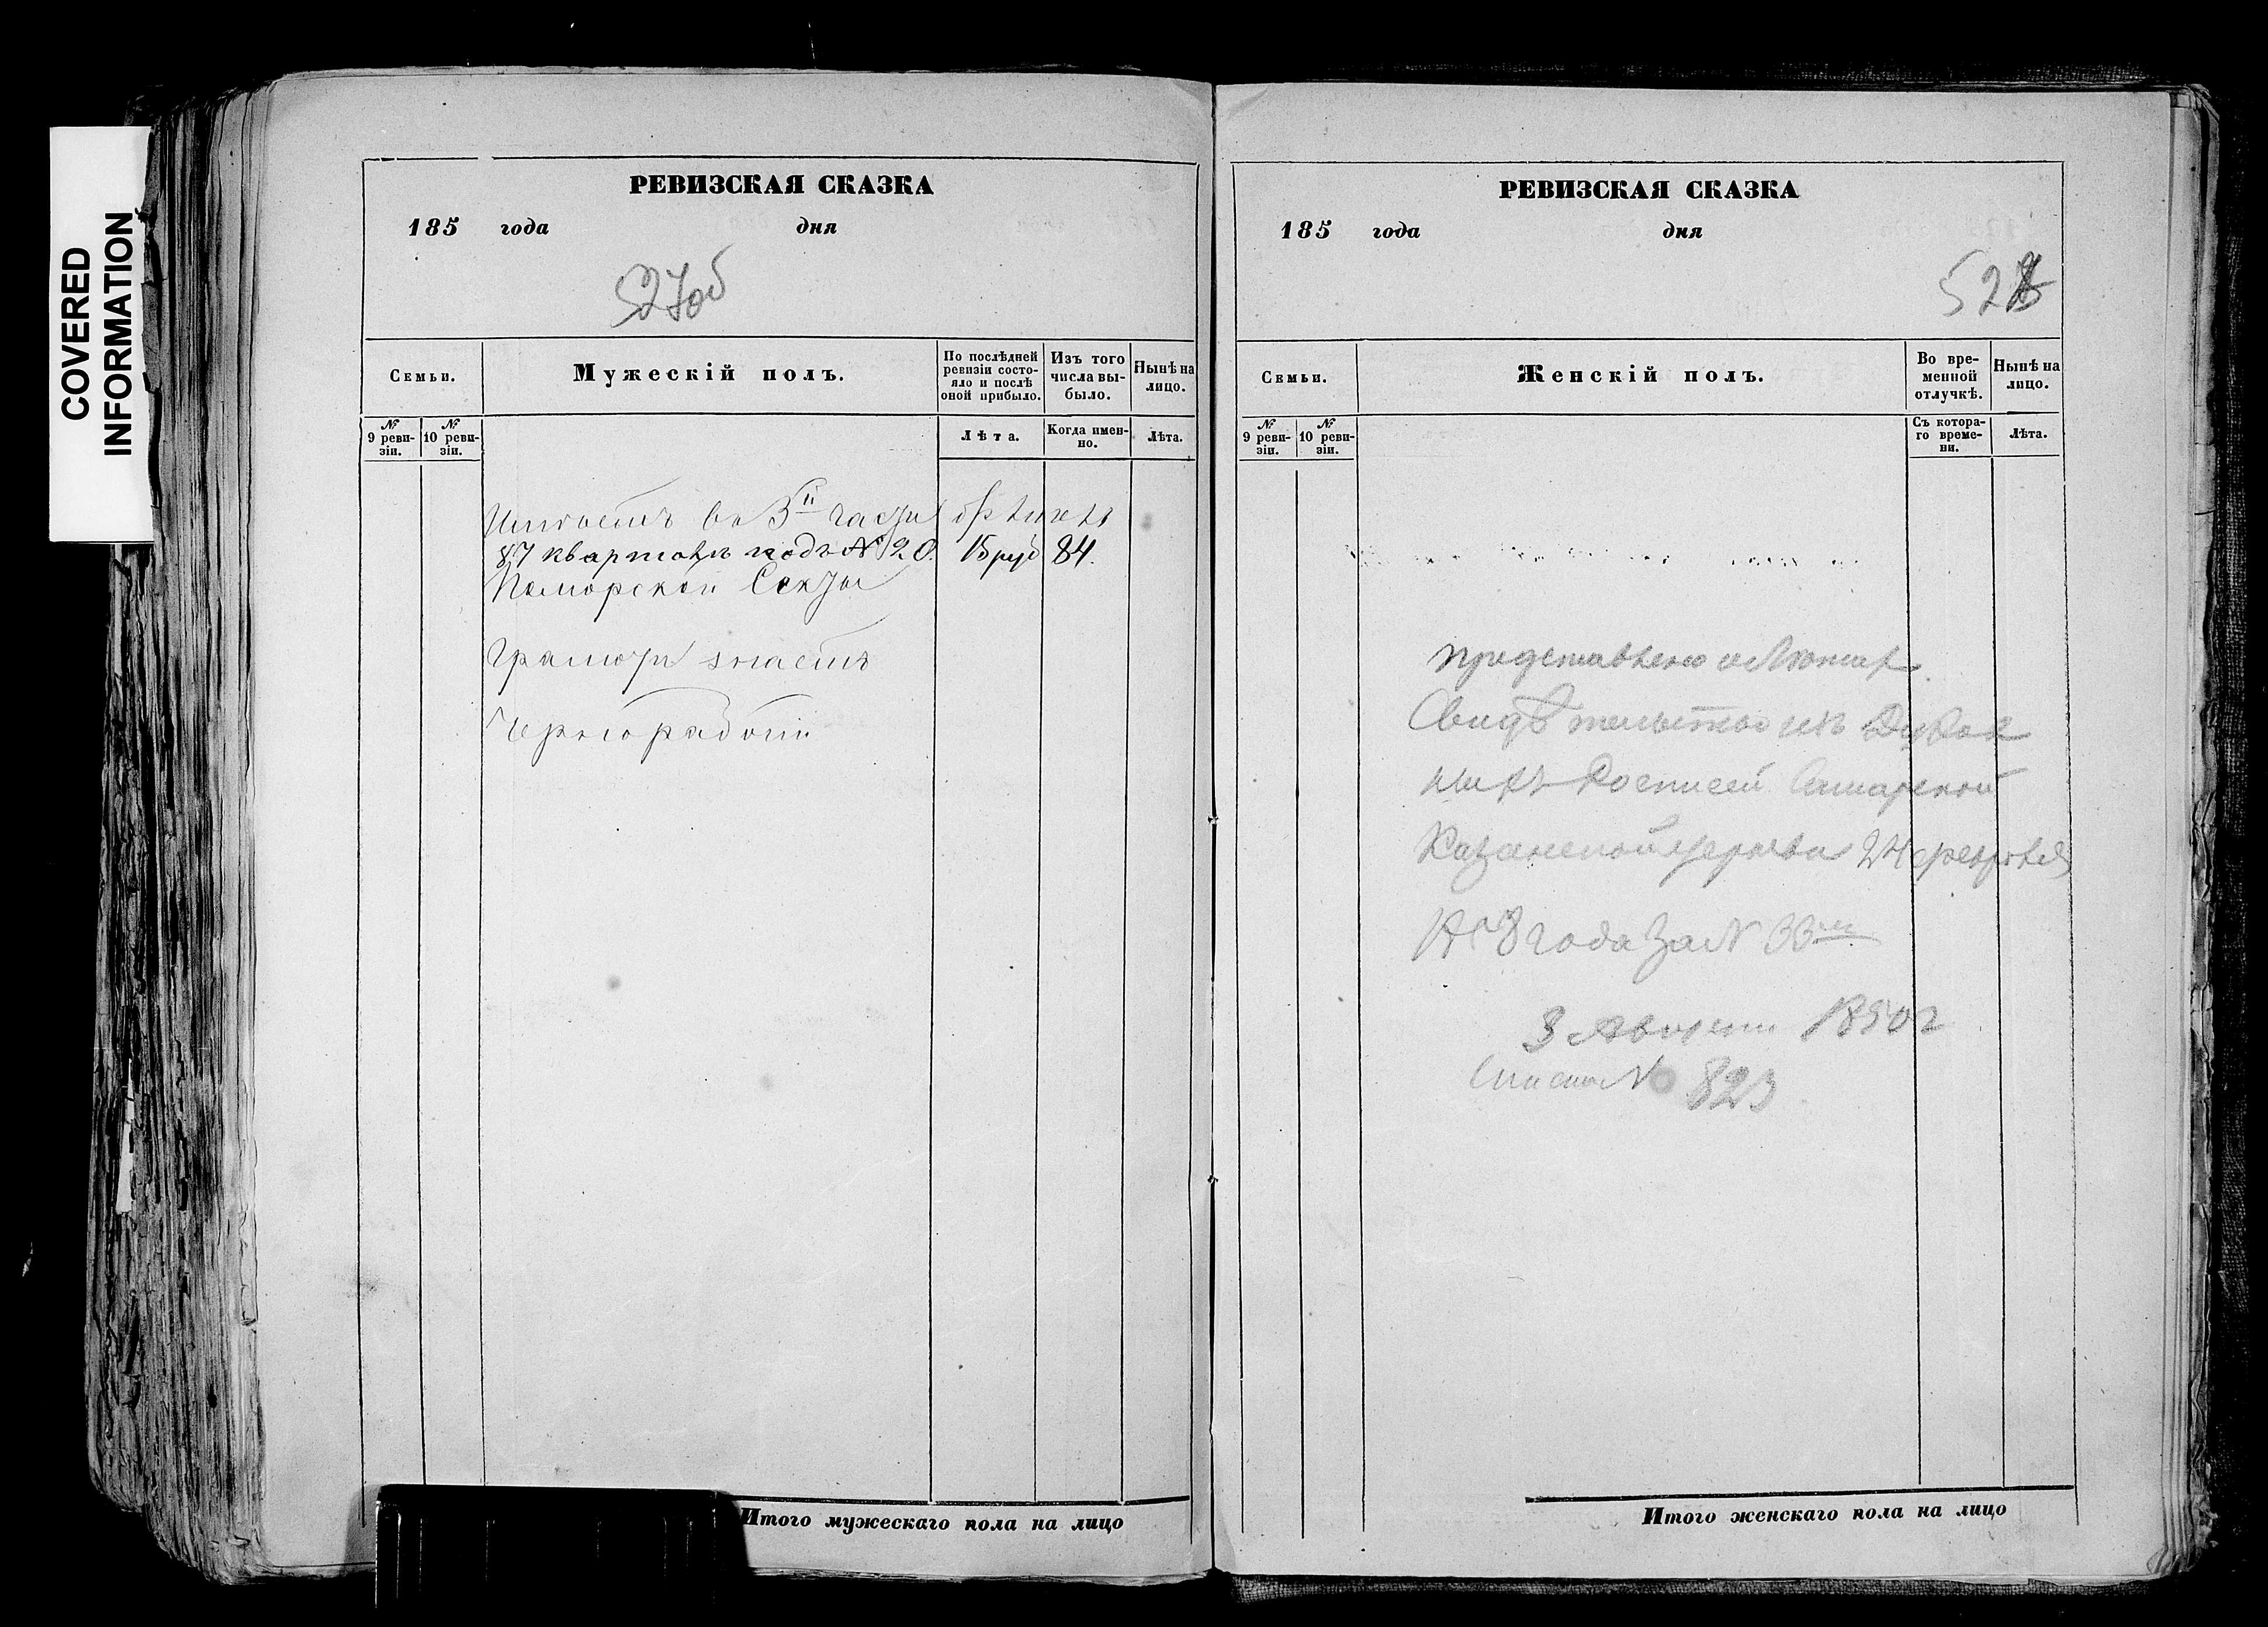 COVERED
INFORMATION
РЕВИЗСКАЯ СКАЗКА
185 года дня
527об
Семьи.
Мужескій полъ.
По послѣдней ревизіи состояло и послѣ оной прибыло.
Изъ того числа выбыло.
Нынѣ на лицо.
№ 9 ревизіи.
№ 10 ревизіи.
Лѣта.
Когда именно.
Лѣта.
въ 3й части
87 кварталъ подъ № 20. 15 руб 84.
Поморской Секты
Грамоти знаетъ
Чернорабочій
Итого мужескаго пола на лицо
РЕВИЗСКАЯ СКАЗКА
185 года дня
52
Семьи.
Женскій полъ.
Во временной отлучкѣ.
Нынѣ на лицо.
№ 9 ревизіи.
№ 10 ревизіи.
Съ котораго времени.
Лѣта.
представлено
Свидѣтельство изъ Духов
ныхъ Росписей Самарской
Казанской церкви 24 февраля
года за № 33
3 Августа
№ 823
Итого женскаго пола на лицо